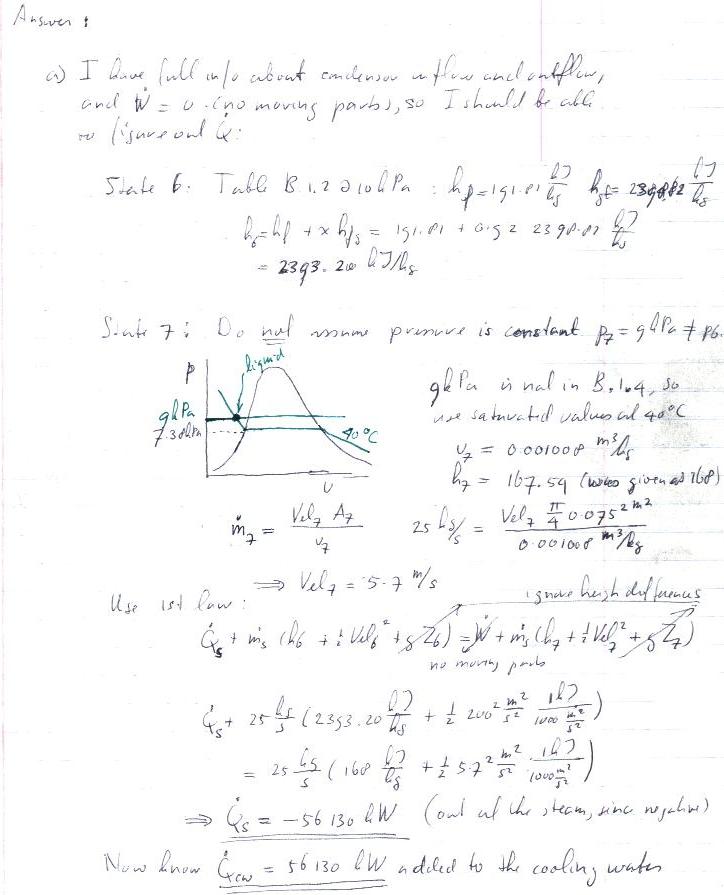 Answer :
a) I have full info about condensor inflow and outflow,
and Ẇ = 0 (no moving parts), so I should be able
to figure out Q̇:
State 6: Table B.1.2 @ 10 kPa : hf = 191.81 kJ/kg hfg = 2392.82 kJ/kg
h6 = hf + x hfg = 191.81 + 0.92 2392.82 kJ/kg
= 2393.20 kJ/kg
State 7: Do not assume pressure is constant P7 = 9 kPa ≠ P6.
P
liquid
9 kPa
7.38 kPa
40°C
v
9 kPa is not in B.1.4, so
use saturated values at 40°C
v7 = 0.001008 m³/kg
h7 = 167.54 (was given as 168)
ṁ7 = Vel7 A7 / v7 25 kg/s = Vel7 π/4 0.075² m² / 0.001008 m³/kg
⇒ Vel7 = 5.7 m/s
Use 1st law: ignore height differences
Q̇s + ṁs (h6 + ½ Vel6² + g Z6) = Ẇ + ṁs (h7 + ½ Vel7² + g Z7)
no moving parts
Q̇s + 25 kg/s (2393.20 kJ/kg + ½ 200² m²/s² 1 kJ / 1000 m²/s²)
= 25 kg/s (168 kJ/kg + ½ 5.7² m²/s² 1 kJ / 1000 m²/s²)
⇒ Q̇s = −56 130 kW (out of the steam, since negative)
Now know Q̇cw = 56 130 kW added to the cooling water